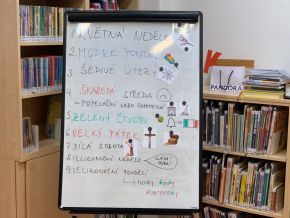 1 KVĚTNÁ NEDĚLE
2 MODRÉ PONDĚLÍ
3 ŠEDIVÉ ÚTERÝ
4 ŠKAREDÁ STŘEDA
= POPELEČNÍ NEBO SAMETNÁ
5 ZELENÝ ČTVRTEK
6 VELKÝ PÁTEK
7 BÍLÁ SOBOTA
8 VELIKONOČNÍ NEDĚLE
9 VELIKONOČNÍ PONDĚLÍ
hody, hody
doprovody
PANDORA